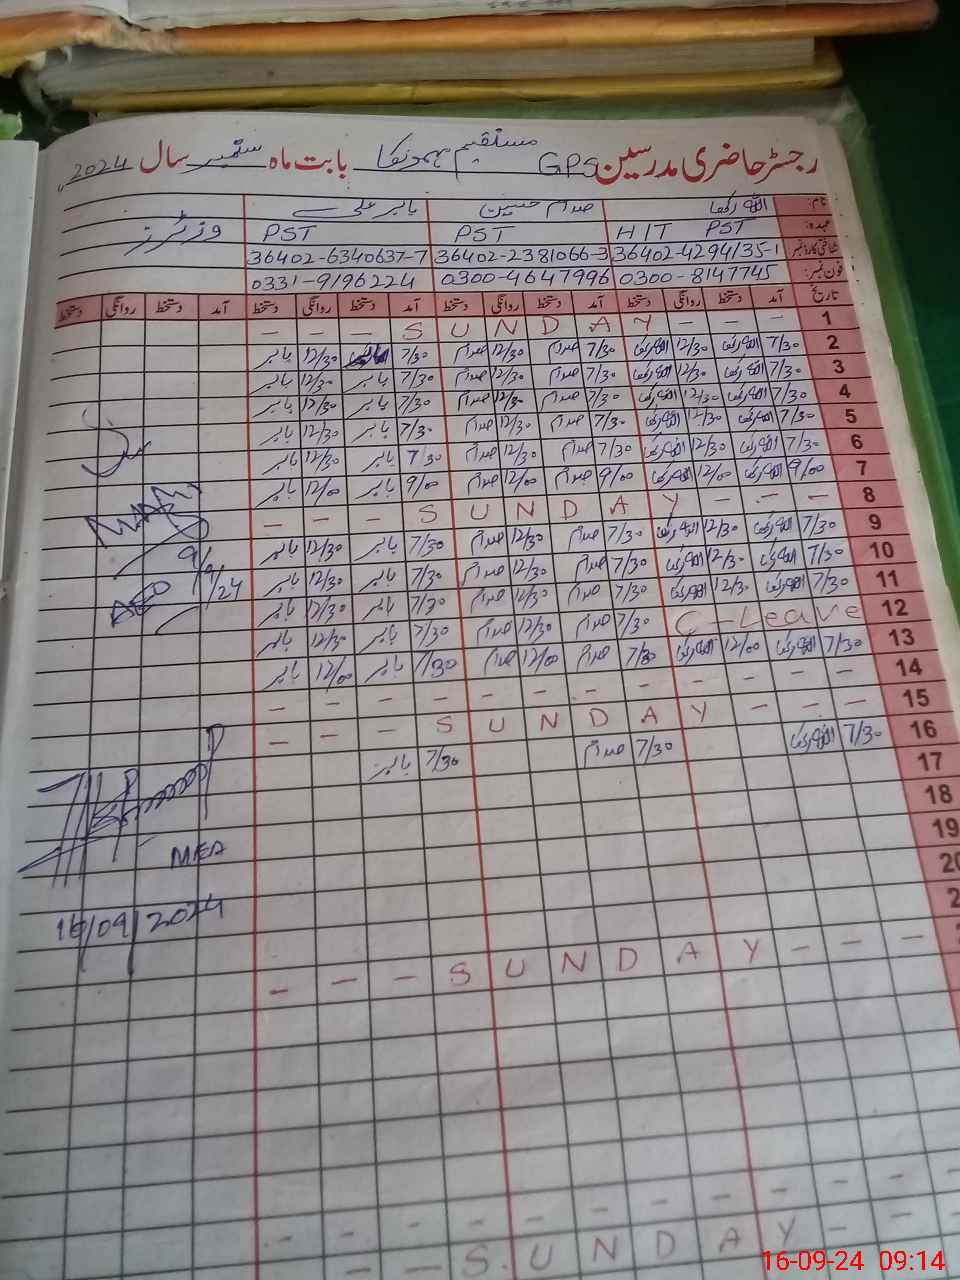 رجسٹر حاضری مدرسین GPS مستقیم ہمونکا بابت ماہ ستمبر سال 2024
نام: اللہ رکھا صدام حسین بابر علی وزیٹرز
عہدہ: HIT PST PST PST
شناختی کارڈ نمبر 36402-4294135-1 36402-2381066-3 36402-6340637-7
فون نمبر: 0300-8147745 0300-4647996 0331-9196224
تاریخ آمد دستخط روانگی دستخط آمد دستخط روانگی دستخط آمد دستخط روانگی دستخط آمد دستخط روانگی دستخط
1 - - - S U N D A Y - - -
2 7/30 اللہ رکھا 12/30 اللہ رکھا 7/30 صدام 12/30 صدام 7/30 12/30 بابر
3 7/30 اللہ رکھا 12/30 اللہ رکھا 7/30 صدام 12/30 صدام 7/30 بابر 12/30 بابر
4 7/30 اللہ رکھا 12/30 اللہ رکھا 7/30 صدام 12/30 صدام 7/30 بابر 12/30 بابر
5 7/30 اللہ رکھا 12/30 اللہ رکھا 7/30 صدام 12/30 صدام 7/30 بابر 12/30 بابر
6 7/30 اللہ رکھا 12/30 اللہ رکھا 7/30 صدام 12/30 صدام 7/30 بابر 12/30 بابر
7 9/00 اللہ رکھا 12/00 اللہ رکھا 9/00 صدام 12/00 صدام 9/00 بابر 12/00 بابر
8 - - - S U N D A Y - - -
9 7/30 اللہ رکھا 12/30 اللہ رکھا 7/30 صدام 12/30 صدام 7/30 بابر 12/30 بابر
10 7/30 اللہ رکھا 12/30 اللہ رکھا 7/30 صدام 12/30 صدام 7/30 بابر 12/30 بابر
11 7/30 اللہ رکھا 12/30 اللہ رکھا 7/30 صدام 12/30 صدام 7/30 بابر 12/30 بابر
12 C-Leave 7/30 صدام 12/30 صدام 7/30 بابر 12/30 بابر
13 7/30 اللہ رکھا 12/00 اللہ رکھا 7/30 صدام 12/00 صدام 7/30 بابر 12/00 بابر
14 - - - - - - - - - - - -
15 - - - S U N D A Y - - -
16 7/30 اللہ رکھا 7/30 صدام 7/30 بابر
17
18
19
20
- - - S U N D A Y - - -
- - - - - - - - - - - -
- - S U N D A Y - - -
9/9/24
AEO
MEA
16/09/2024
16-09-24 09:14